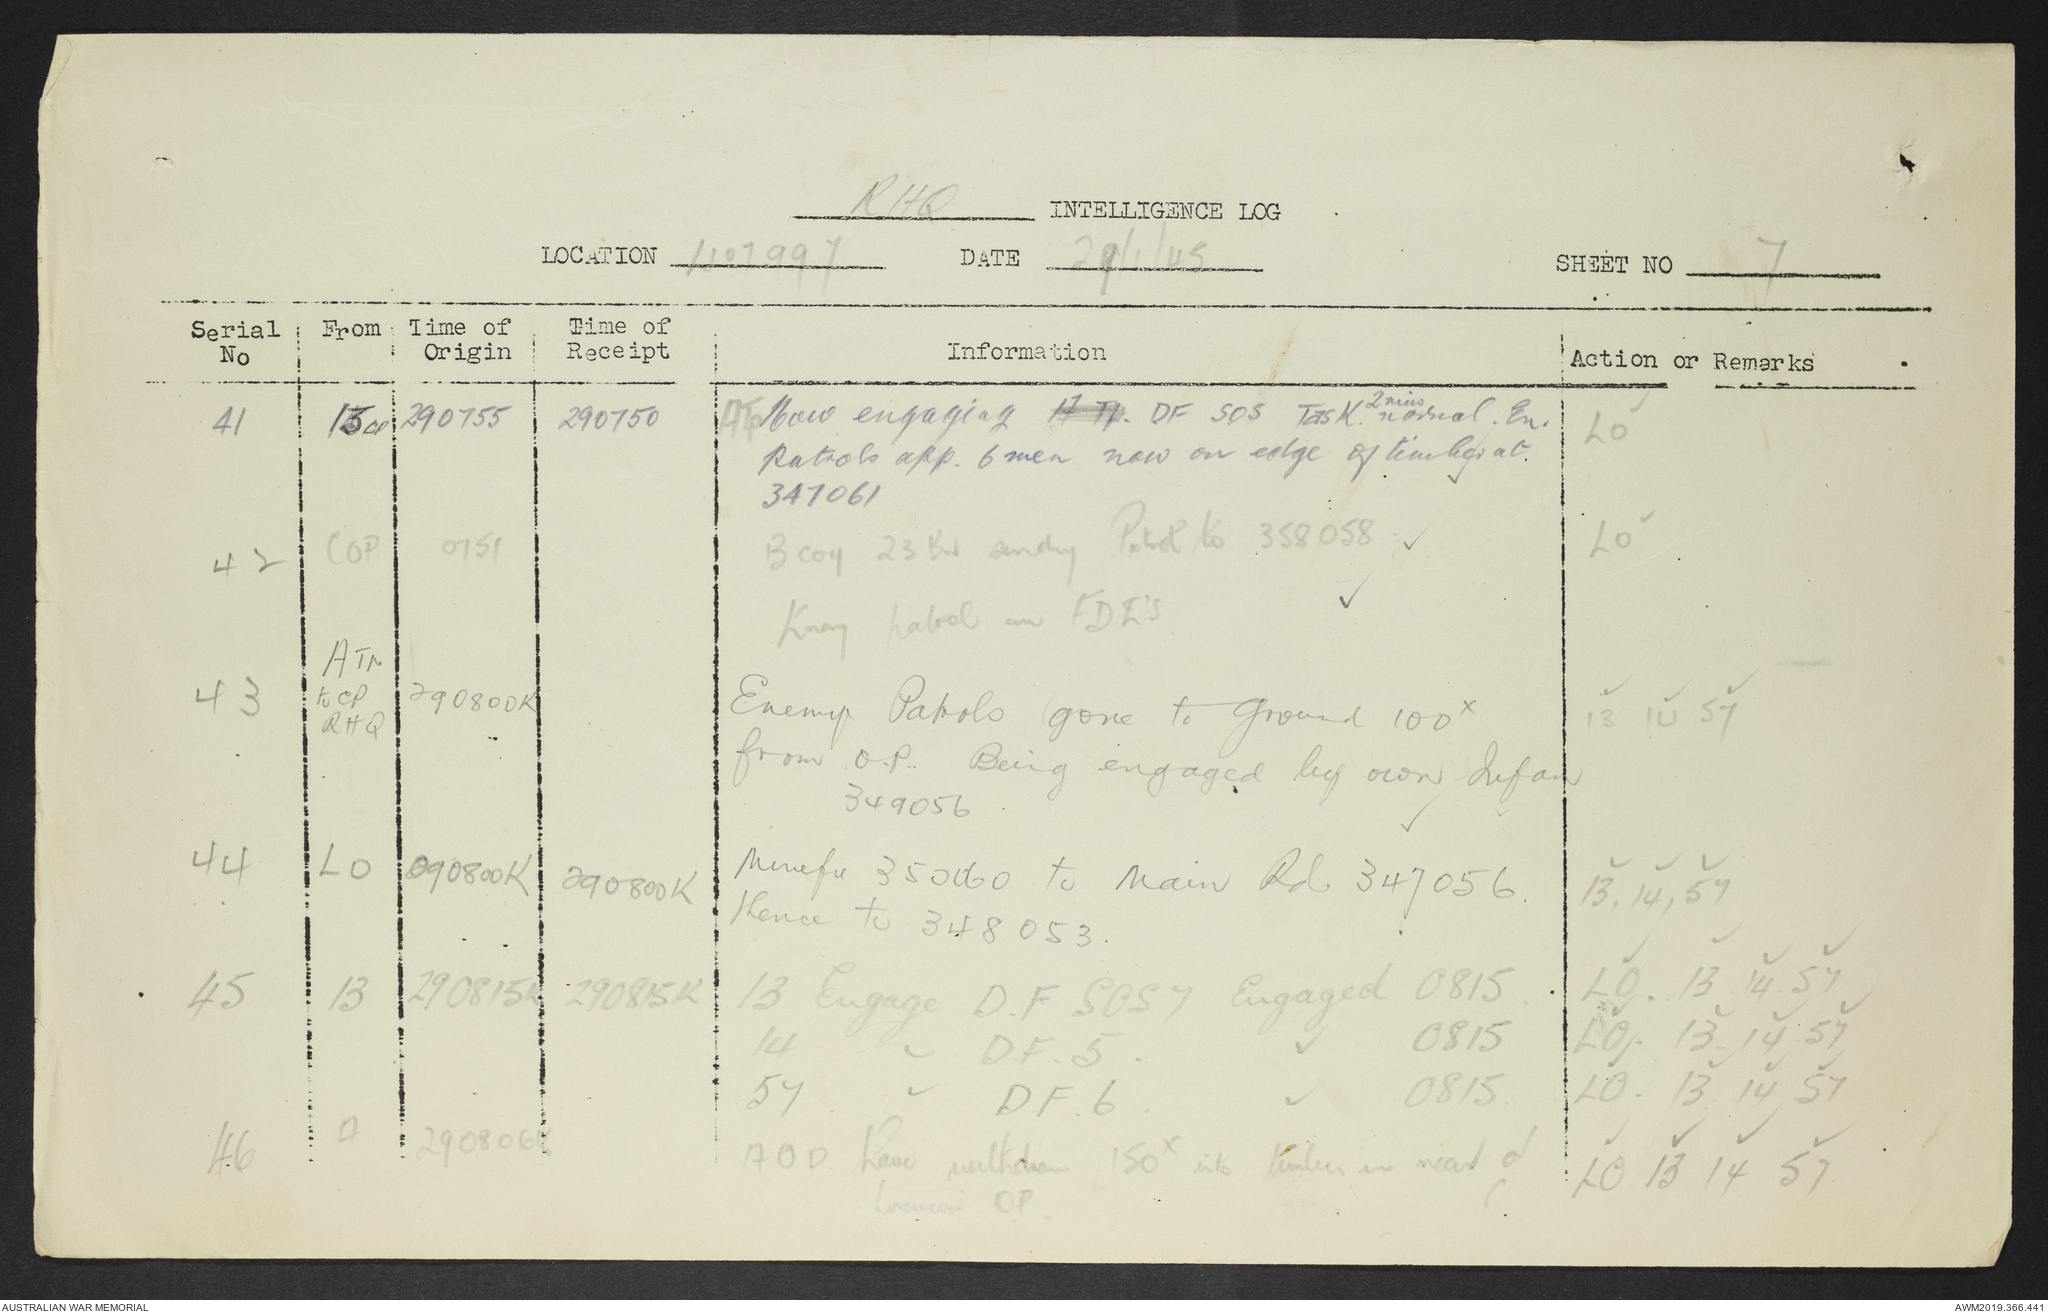 RHQ INTELLIGENCE LOG
LOCATION 1107997 DATE 29/1/45 SHEET NO 7
Serial No From Time of Origin Time of Receipt Information Action or Remarks
41 290755 290750 Now engaging DF SOS Task. 2 mins normal. En. LO
Patrols app. 6 men now on edge of timber at.
347061
42 COP 0751 B coy 23 Bn sending Patrol to 358058 LO
patrol on FDL's
43 A Tp to CP RHQ 290800K Enemy Patrols gone to Ground 100x 13 14 57
from O.P. Being engaged by own Infan
349056
44 LO 290800K 290800K 350060 to Main Rd. 347056. 13, 14, 57
thence to 348053.
45 13 290815K 290815K 13 Engage D.F SOS 7 Engaged 0815. LO. 13 14 57
14 " D.F. 5. " 0815 LO. 13. 14 57
57 " D.F. 6. " 0815. LO. 13 14 57
46 A 290806K have withdrawn 150x into timber in rear of LO 13 14 57
OP.
AUSTRALIAN WAR MEMORIAL AWM2019.366.441